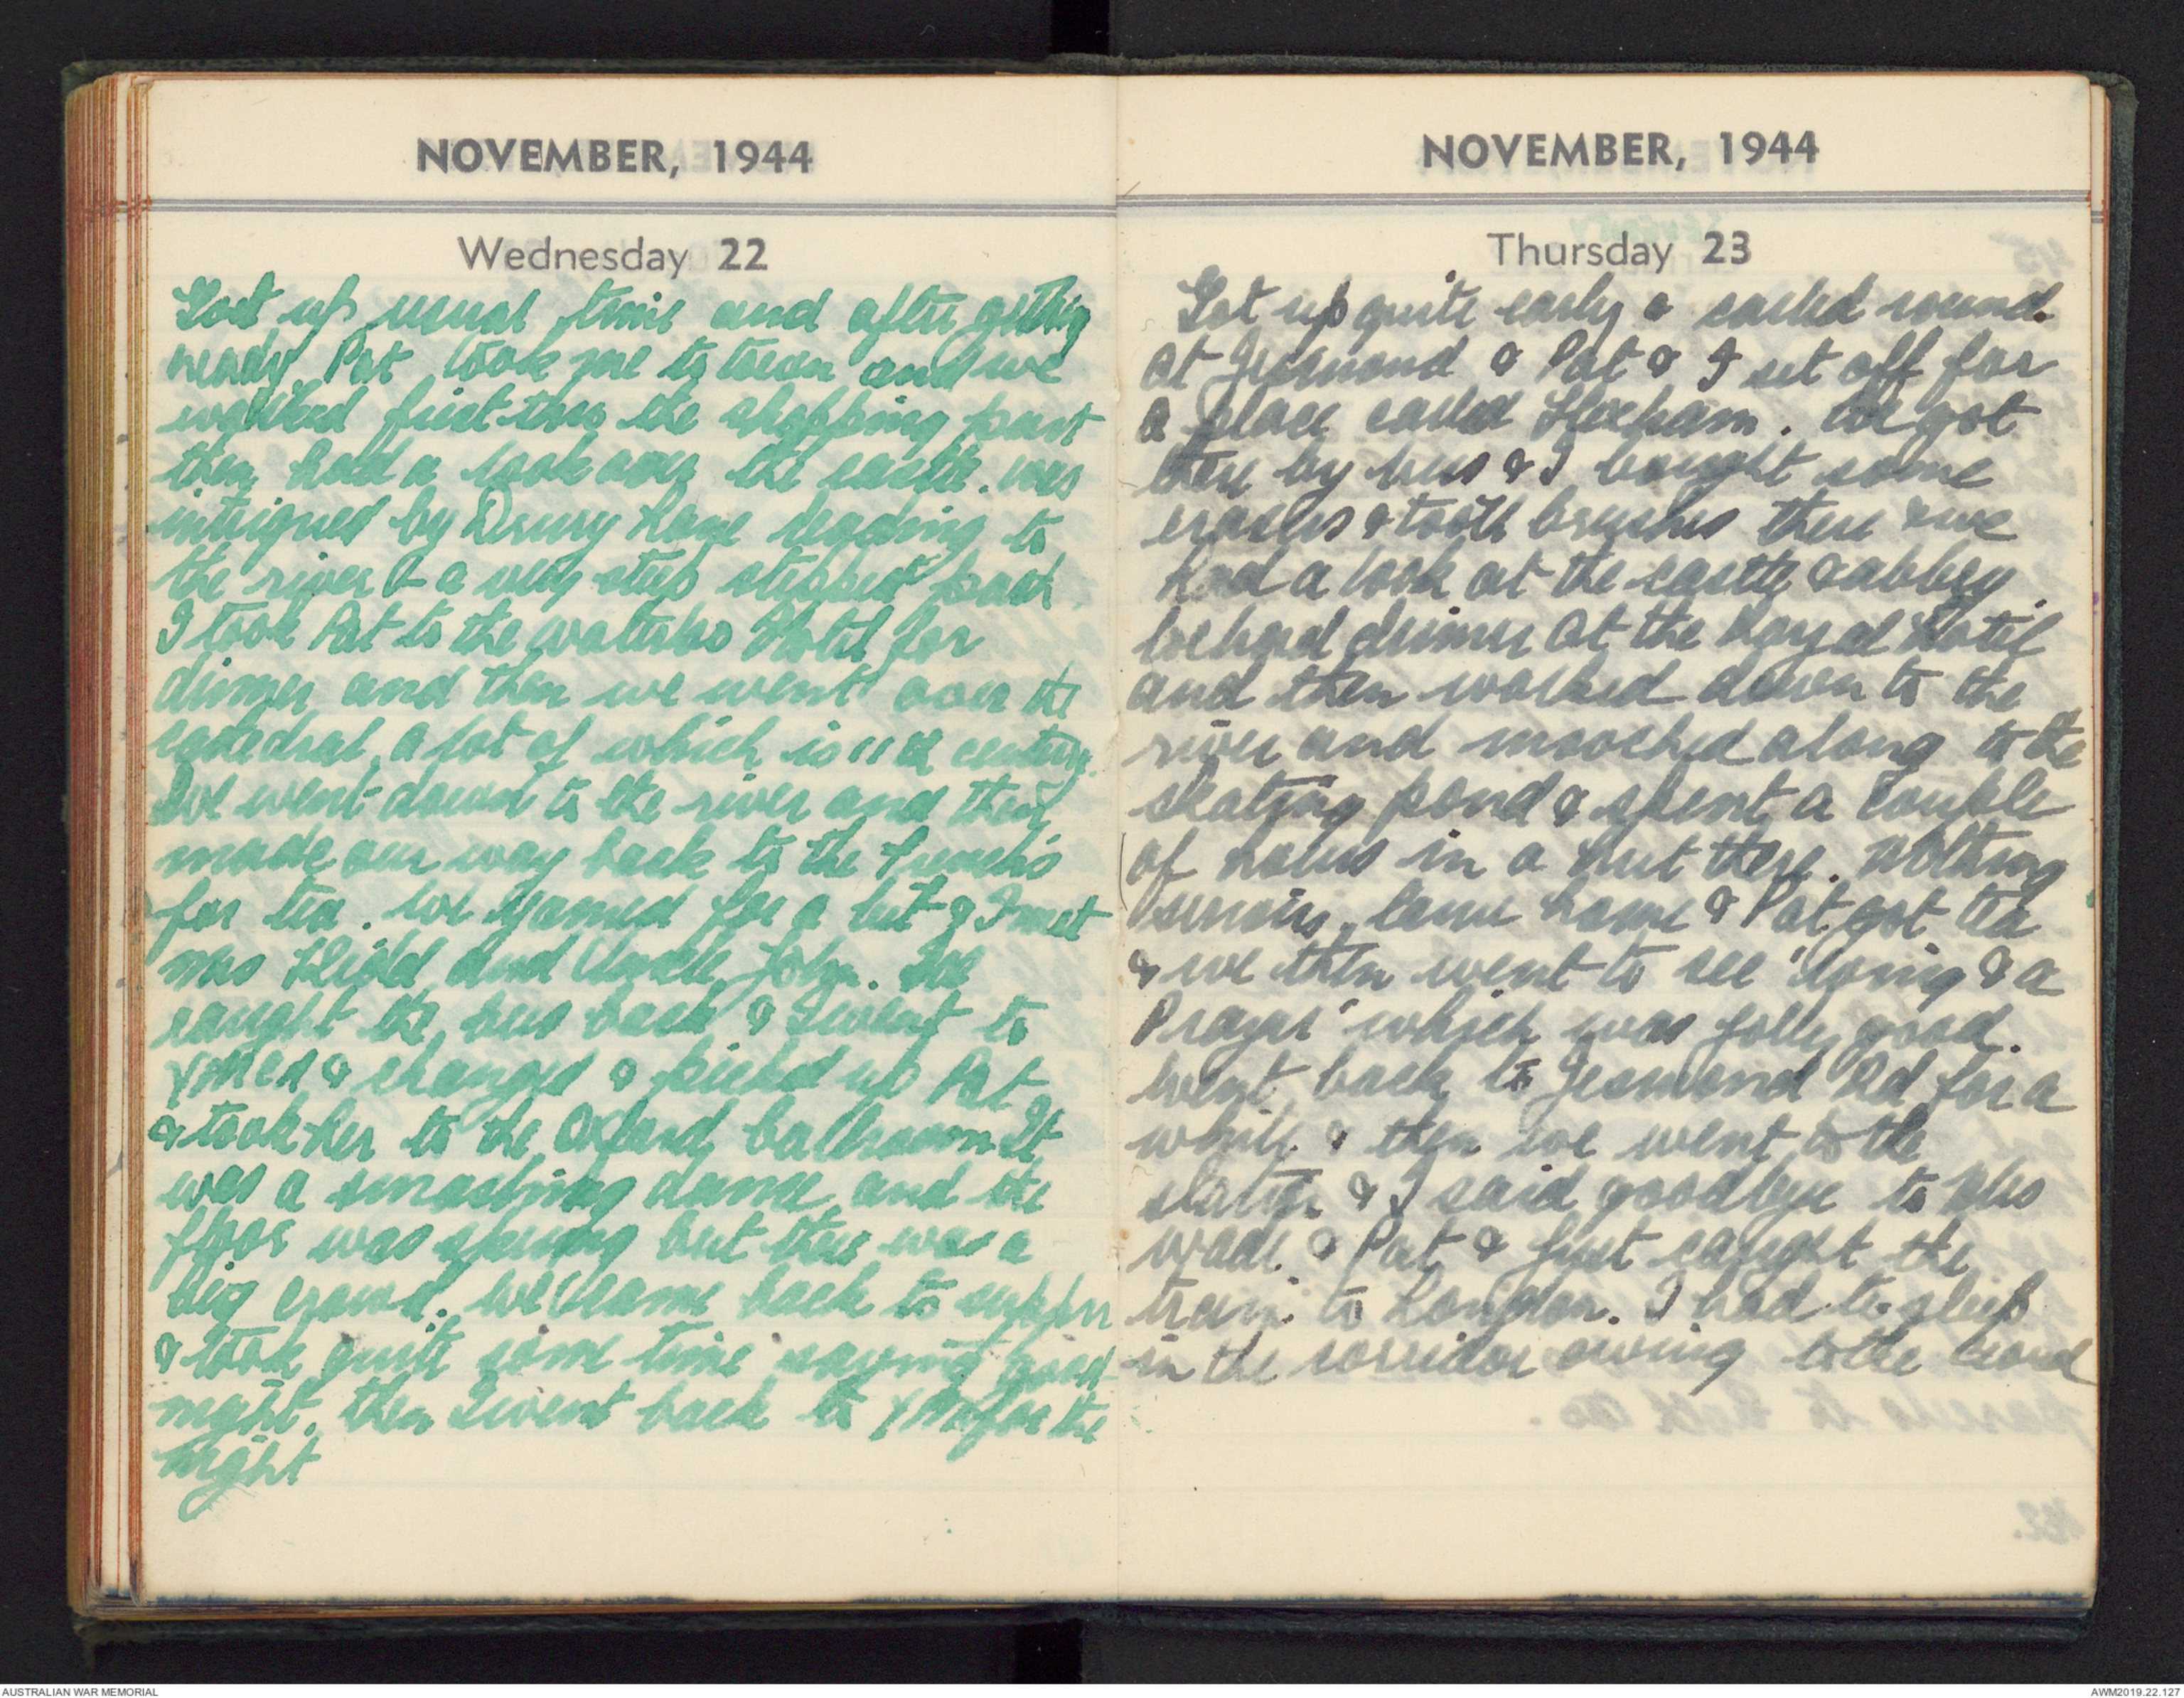 NOVEMBER, 1944
Wednesday 22
Got up usual time and after getting
ready Pat took me to town and we
walked first thro the shopping part
then had a look over the castle. was
intrigued by Drury Lane leading to
the river & a very steep stepped path
I took Pat to the Waterloo Hotel for
dinner and then we went over the
catedral a lot of which is 11th century.
We went down to the river and then
made our way back to the
for tea. We yarned for a bit & I met
Mrs and Uncle John. We
caught the bus back & I went to
YMCA & changed & picked up Pat
& took her to the Oxford ballroom It
was a smashing dance and the
floor was springy but there was a
big crowd. We came back to supper
& took quite some time saying good
night. then I went back to YM for the
night
NOVEMBER, 1944
Thursday 23
Got up quite early & called round
at Jesmond & Pat & I set off for
a place called Hexham. We got
there by bus & I bought some
& tooth brushes there & we
had a look at the castle & abbey.
We had dinner at the Royal Hotel
and then walked down to the
river and mooched along to the
skating pond & spent a couple
of hours in a hut there. Nothing
serious. Came home & Pat got tea
& we then went to see 'Wing & a
Prayer' which was jolly good.
Went back to Jesmond Rd for a
while & then we went to the
station & I said goodbye to Mrs
Wade & Pat & just caught the
train to London. I had to sleep
in the corridor owing to the crowd
AUSTRALIAN WAR MEMORIAL
AWM2019.22.127